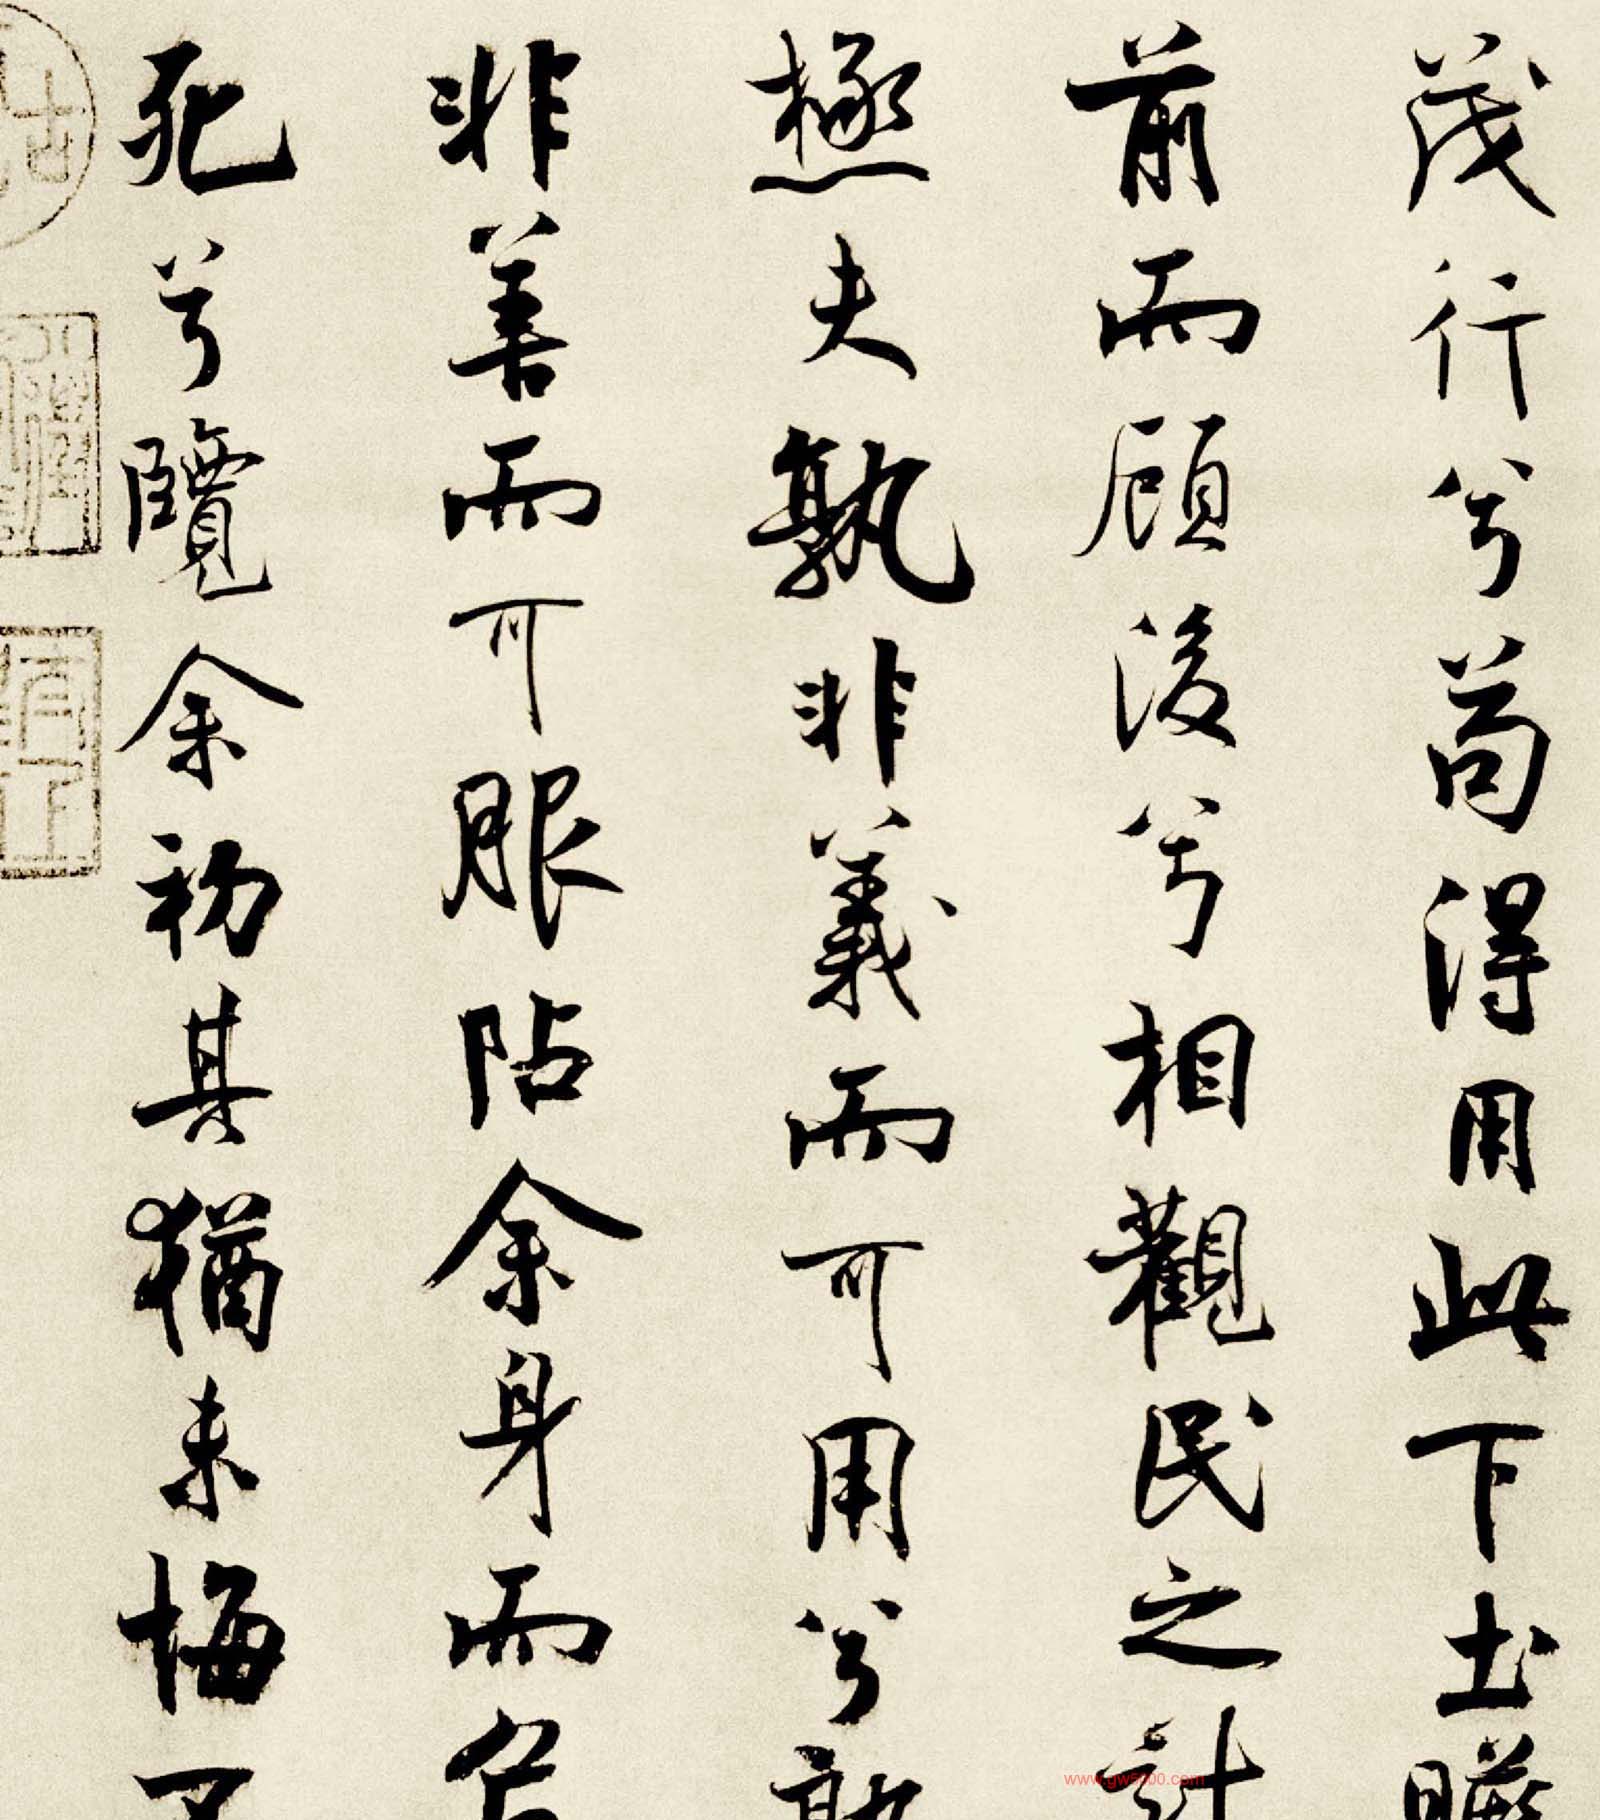 茂行兮苟得用此下土瞻
前而顧後兮相觀民之計
極夫孰非義而可用兮孰
非善而可服阽余身而危
死兮覽余初其猶未悔不
www.gw5000.com